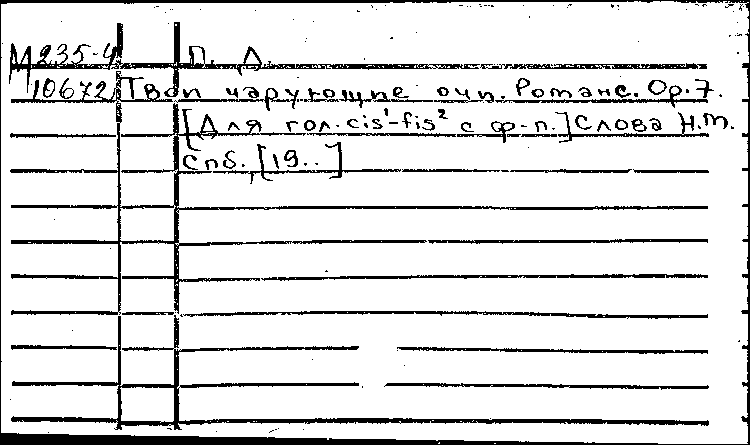 М 235-4 П., Д.
10672 Твои чарующие очи. Романс. Ор. 7.
[Для гол. cis¹-fis² с ф-п.] Слова Н.М.
Спб., [19..]